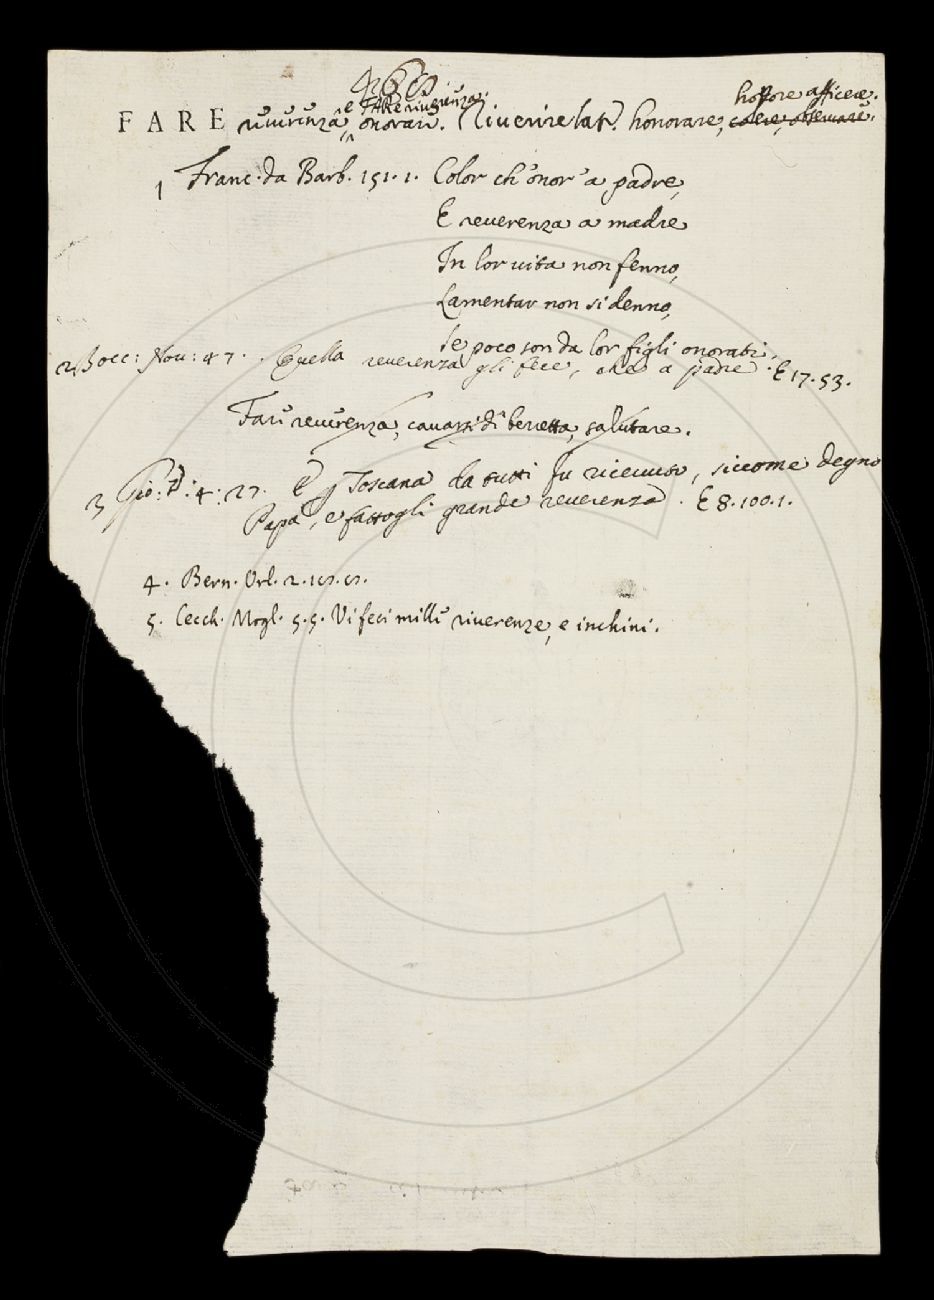 honore afficere.
e FARE riverenza.
FARE riverenza, onorare. Riverire lat. honorare, colere, observare.
1 Franc. da Barb. 151. 1. Color ch'onor' a padre,
E reverenza a madre
In lor vita non fenno,
Lamentar non si denno,
Se poco son da lor figli onorati.
2 Bocc: Nov: 47. Quella reverenza gli fece, che a padre. E 17. 53.
Fare reverenza, cavarsi di berretta, salutare.
3 Gio: V: 4: 27. E p Toscana da tutti fu ricevuto, siccome degno
Papa, e fattogli grande reverenza. E 8. 100. 1.
4. Bern. Orl. 2.
5. Cecch. Mogl. 5. 5. Vi feci mille riverenze, e inchini.